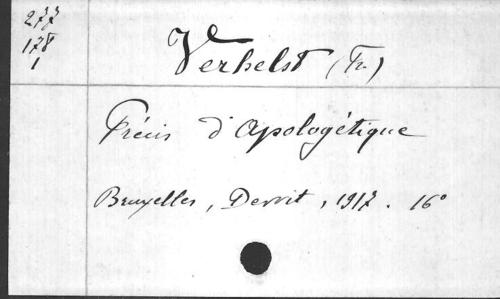 277
178
1
Verhelst (Fr.)
Précis d'Apologétique
Bruxelles, Dewit, 1917. 16°